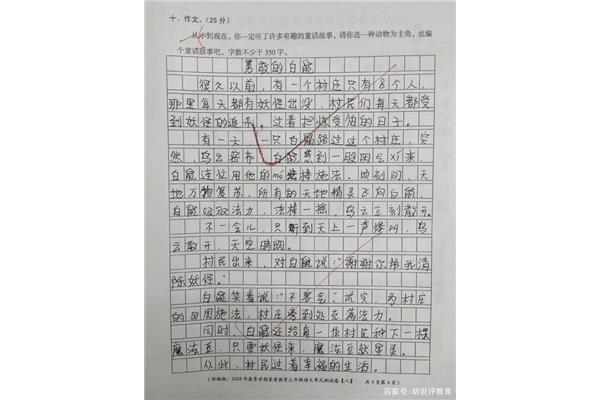 十、作文。(25分)
从小到现在，你一定听了许多有趣的童话故事，请你选一种动物为主角，也编
个童话故事吧。字数不少于350字。
勇敢的白鼠
很久以前，有一个村庄只有8个人，
那里每天都有妖怪出没，村民们每天都受
到妖怪的追杀，过着担惊受怕的日子。
有一天，一只白鼠路过这个村庄，突
然，乌云密布，白鼠感到一股阴气xí来，
白鼠连忙用他的mó法棒施法。顷刻间，天
地万物复苏，所有的天地精灵飞向白鼠，
白鼠吸取法力，法棒一摇，乌云立刻散开。
不一会儿，只听到天上一声惨叫，乌
云散开，天空晴朗。
村民出来，对白鼠说：“谢谢你帮我清
除妖怪。”
白鼠笑着说：“不客气。”说完，为村庄
的四周施法，村庄零到处充满法力。
同时，白鼠还给每一位村民种下一棵
魔法豆，只要妖怪来，魔法豆就显灵。
从此，村民过着幸福的生活。
(部编版：2020年春季学期素质教育三年级语文单元测试卷【八】 共4页第4页)
百家号/胡说评教育